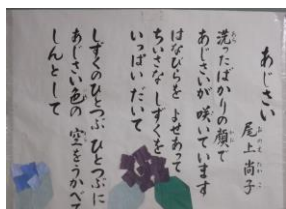 あじさい
尾上尚子
おのえ たかこ
洗ったばかりの顔で
あら かお
あじさいが 咲いています
はなびらを よせあって
ちいさな しずくを
いっぱい だいて
しずくのひとつぶ ひとつぶに
あじさい色の 空をうかべて
しんとして